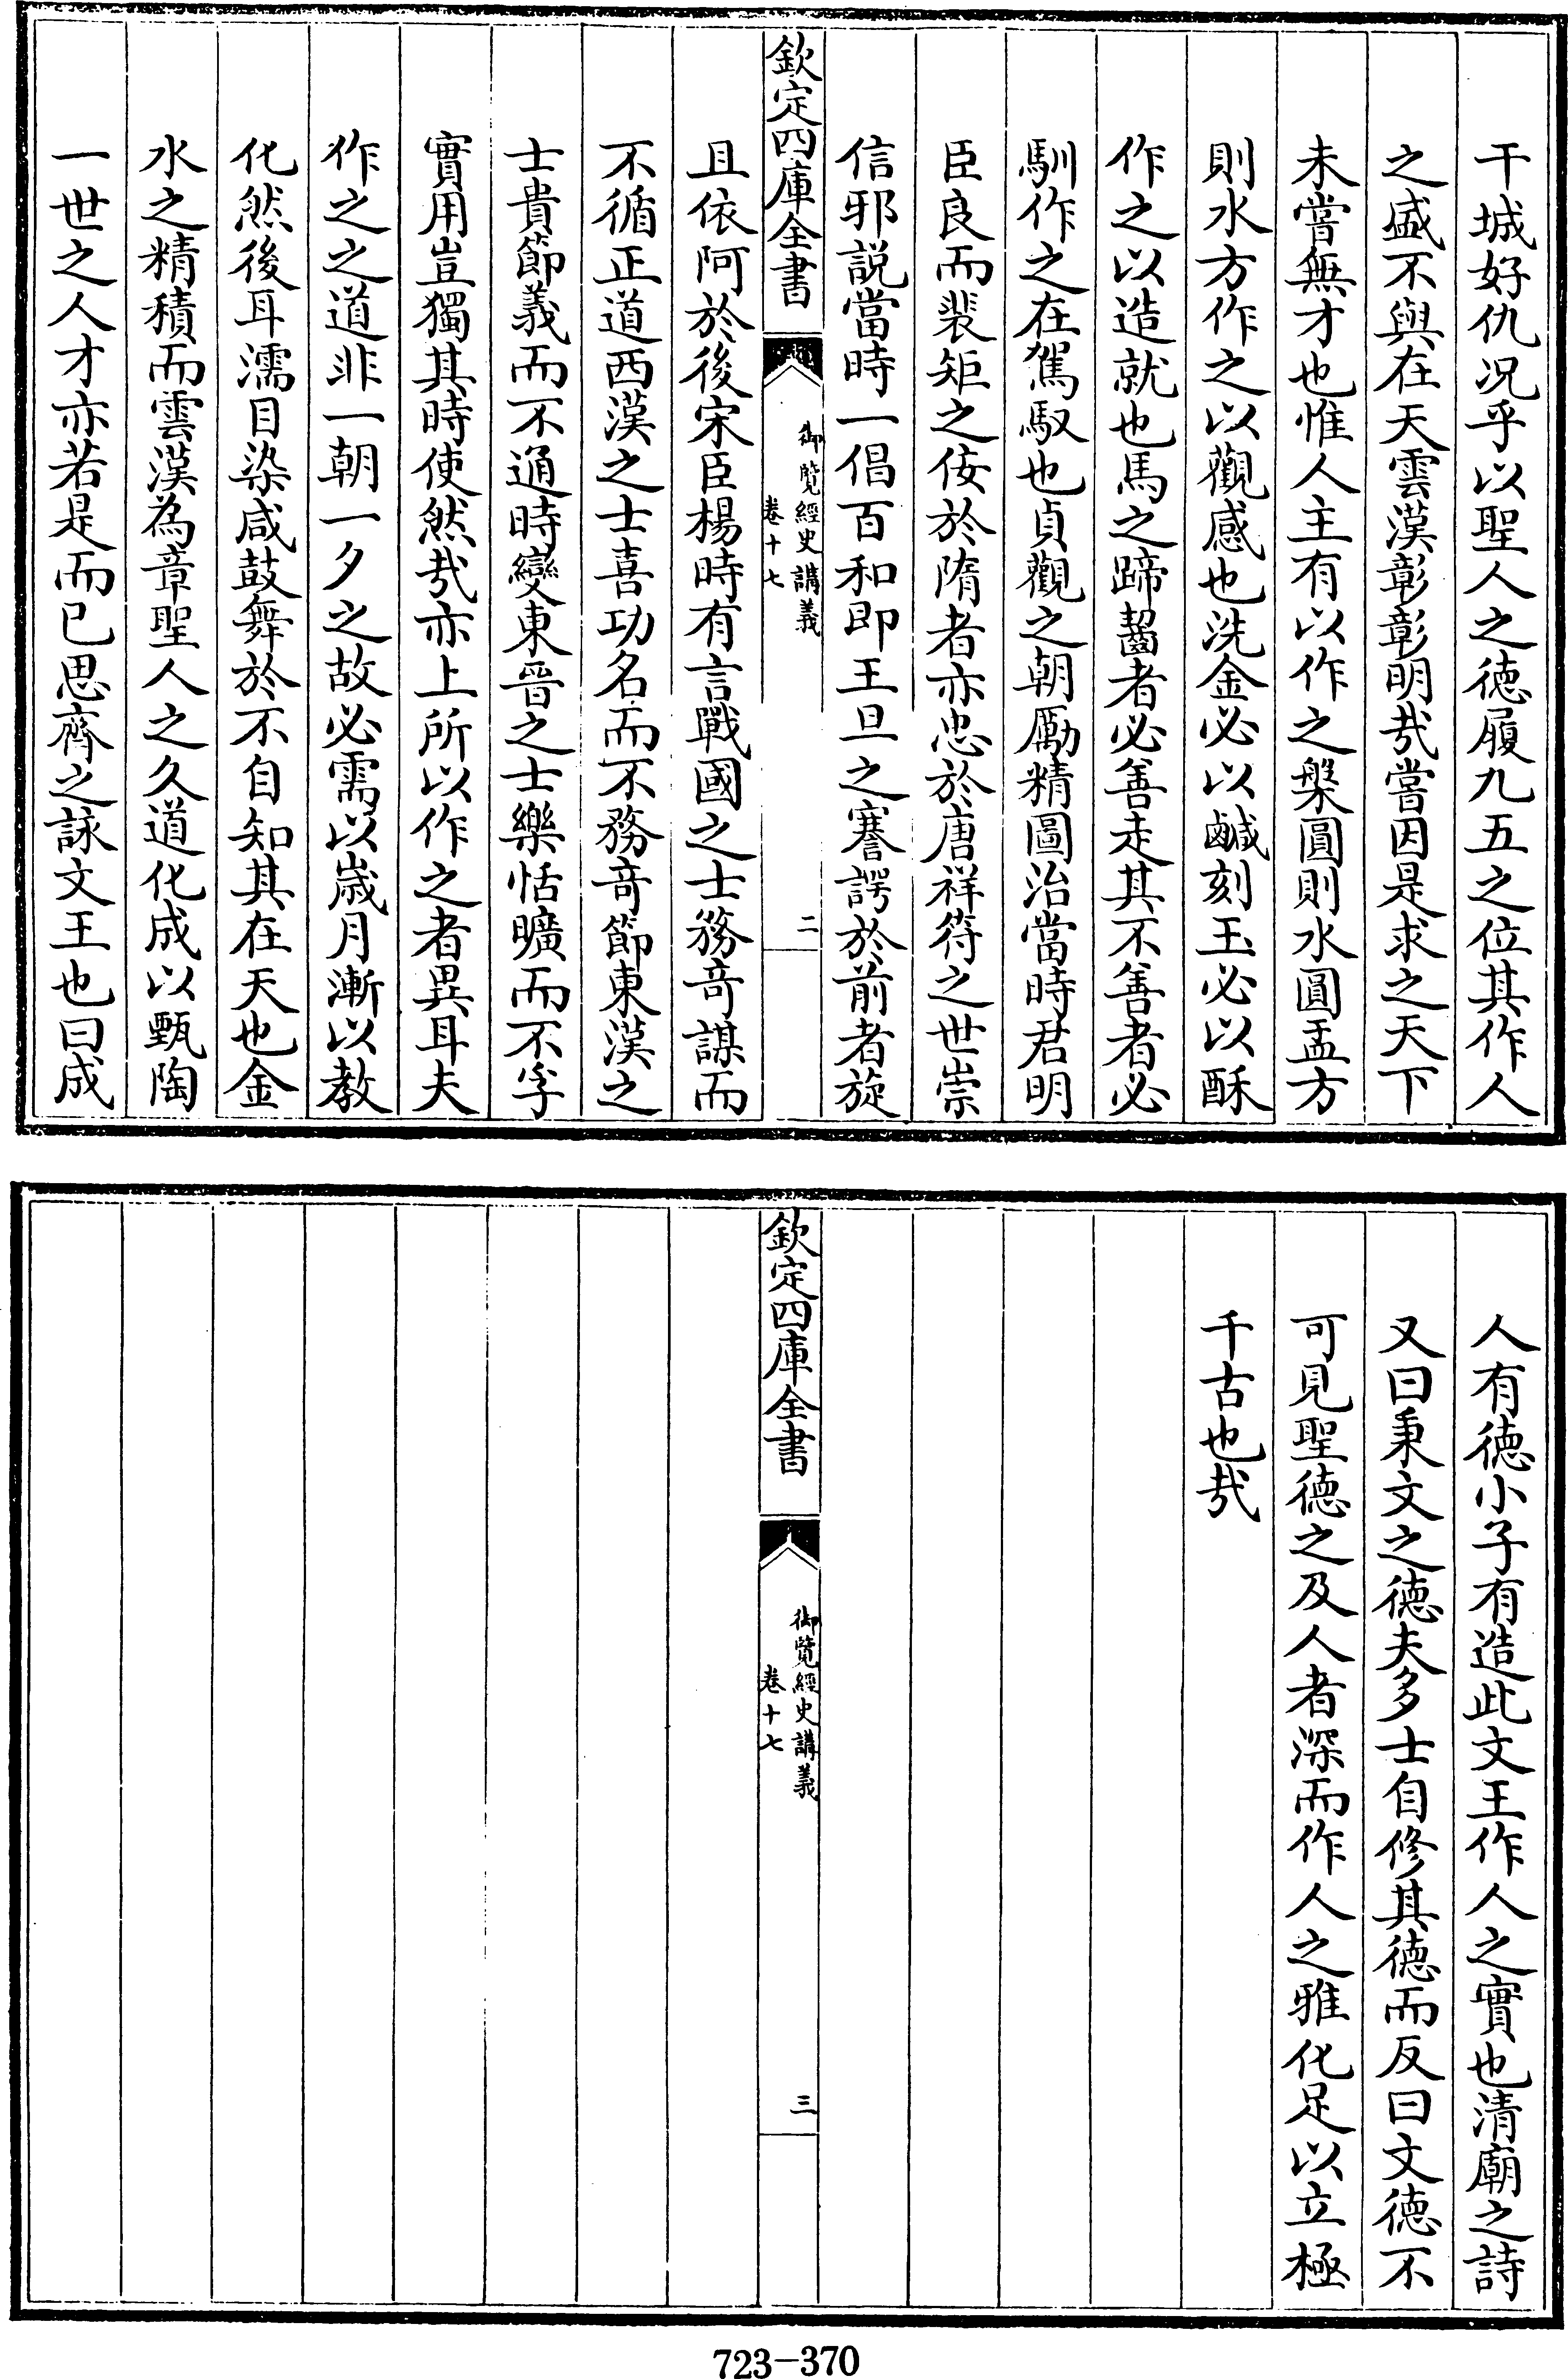 干城好仇况乎以聖人之徳履九五之位其作人
之盛不與在天雲漢彰彰明㢤嘗因是求之天下
未嘗無才也惟人主有以作之槃圓則水圓盂方
則水方作之以觀感也洗金必以鹹刻玉必以酥
作之以造就也馬之蹄齧者必善走其不善者必
馴作之在駕馭也貞觀之朝勵精圖治當時君明
臣良而裴矩之佞於隋者亦忠於唐祥符之世崇
信邪説當時一倡百和即王旦之謇諤於前者旋
欽定四庫全書
御覽經史講義
卷十七
二
且依阿於後宋臣楊時有言戰國之士務竒謀而
不循正道西漢之士喜功名而不務竒節東漢之
士貴節義而不通時變東晉之士樂恬曠而不孚
實用豈獨其時使然㢤亦上所以作之者異耳夫
作之之道非一朝一夕之故必需以嵗月漸以教
化然後耳濡目染咸鼓舞於不自知其在天也金
水之精積而雲漢為章聖人之久道化成以甄陶
一世之人才亦若是而已思齊之詠文王也曰成
人有徳小子有造此文王作人之實也清廟之詩
又曰秉文之徳夫多士自修其徳而反曰文徳不
可見聖徳之及人者深而作人之雅化足以立極
千古也㢤
欽定四庫全書
御覽經史講義
卷十七
三
723-370